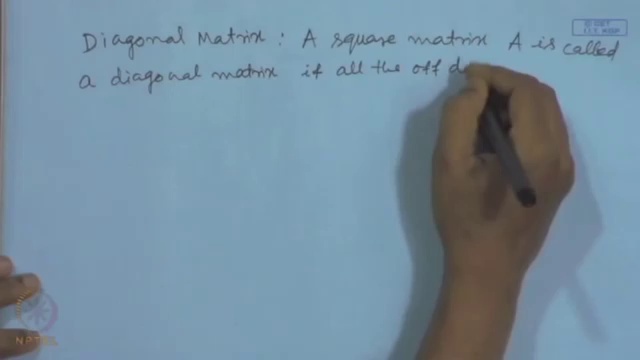 Diagonal Matrix : A square matrix A is called
a diagonal matrix if all the off d
NPTEL